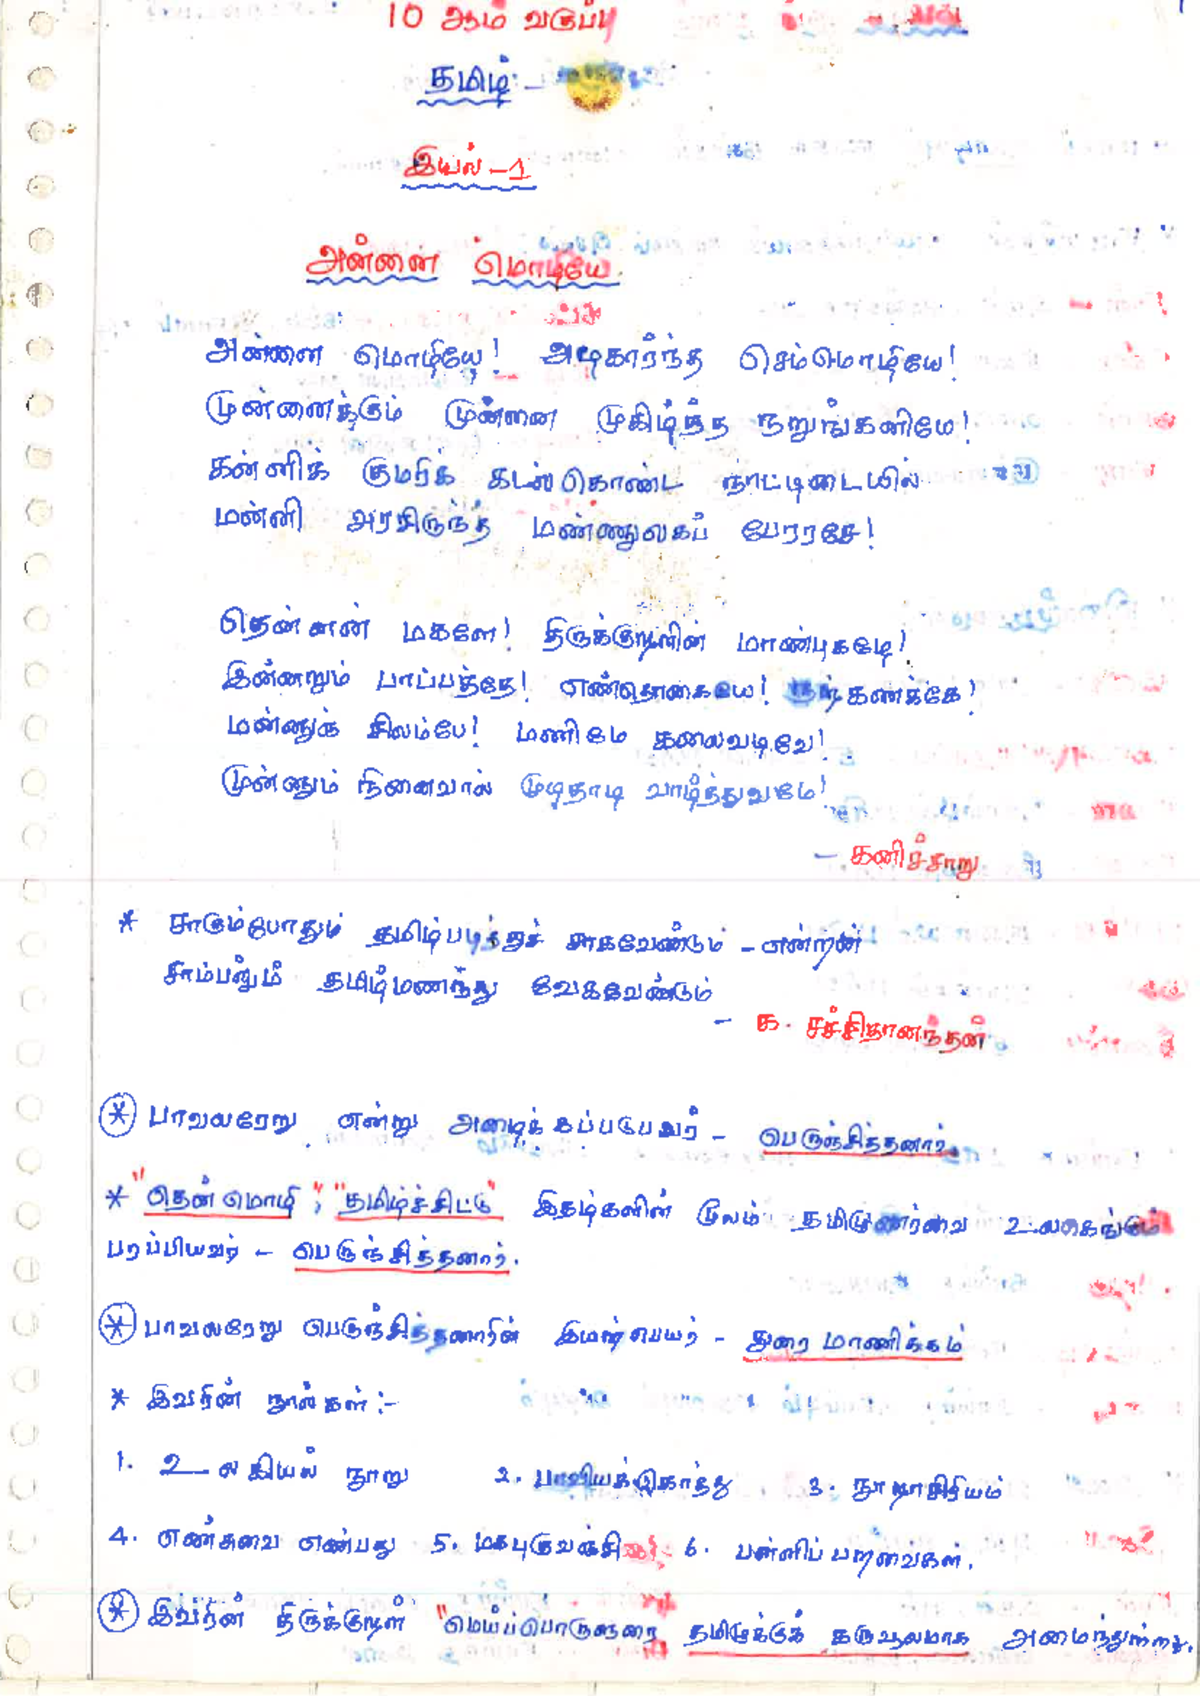 10 ஆம் வகுப்பு
தமிழ் -
இயல் - 1
அன்னை மொழியே
அன்னை மொழியே! அழகார்ந்த செம்மொழியே!
முன்னைக்கும் முன்னை முகிழ்த்த நறுங்கனியே!
கன்னிக் குமரிக் கடல்கொண்ட நாட்டிடையில்
மன்னி அரசிருந்த மண்ணுலகப் பேரரசே!
தென்னன் மகளே! திருக்குறளின் மாண்புகழே!
இன்னறும் பாப்பத்தே! எண்தொகையே! நற்கணக்கே!
மன்னுஞ் சிலம்பே! மணிமே கலைவடிவே!
முன்னும் நினைவால் முடிதாழ வாழ்த்துவமே!
- கனிச்சாறு
* சாகும்போதும் தமிழ்படித்துச் சாகவேண்டும் - என்றன்
சாம்பலும் தமிழ்மணந்து வேகவேண்டும்
- க. சச்சிதானந்தன்
* பாவலரேறு என்று அழைக்கப்படுபவர் - பெருஞ்சித்தனார்.
* "தென்மொழி", "தமிழ்ச்சிட்டு" இதழ்களின் மூலம் தமிழுணர்வை உலகெங்கும்
பரப்பியவர் - பெருஞ்சித்தனார்.
* பாவலரேறு பெருஞ்சித்தனாரின் இயற்பெயர் - துரை மாணிக்கம்
* இவரின் நூல்கள் :-
1. உலகியல் நூறு 2. பாவியக்கொத்து 3. நூறாசிரியம்
4. எண்சுவை எண்பது 5. மகபுகுவஞ்சி 6. பள்ளிப் பறவைகள்.
* இவரின் திருக்குறள் "மெய்ப்பொருளுரை தமிழுக்குக் கருவூலமாக அமைந்துள்ளது.